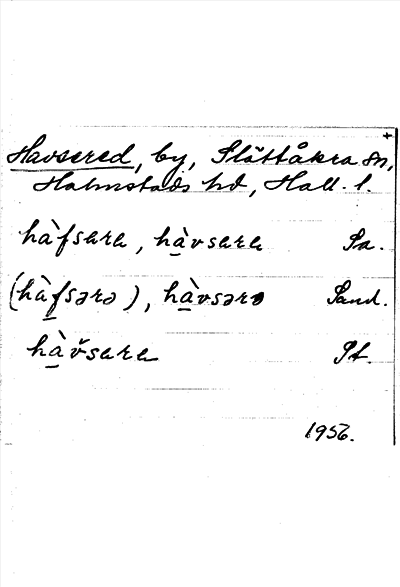 +
Havsered, by, Slättåkra sn,
Halmstads hd, Hall. l.
hàfsara, hàvsara Sa.
(hàfsərə), hàvsərə Sand.
hàvsara St.
1956.